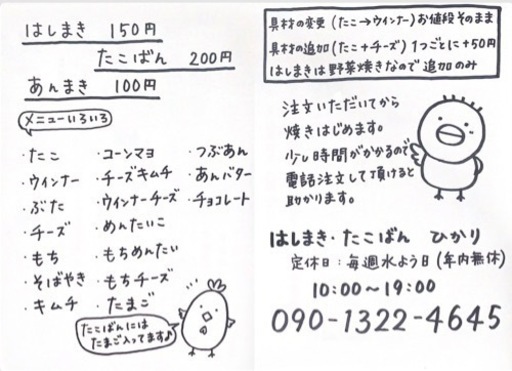 はしまき 150円
たこばん 200円
あんまき 100円
メニューいろいろ
・たこ
・ウインナー
・ぶた
・チーズ
・もち
・そばやき
・キムチ
・コーンマヨ
・チーズキムチ
・ウインナーチーズ
・めんたいこ
・もちめんたい
・もちチーズ
・たまご
・つぶあん
・あんバター
・チョコレート
たこばんには
たまご入ってます♪
具材の変更(たこ→ウインナー)お値段そのまま
具材の追加(たこ+チーズ)1つごとに+50円
はしまきは野菜焼きなので追加のみ
注文いただいてから
焼きはじめます。
少し時間がかかるので
電話注文して頂けると
助かります。
はしまき・たこばん ひかり
定休日:毎週水よう日(年内無休)
10:00〜19:00
090-1322-4645